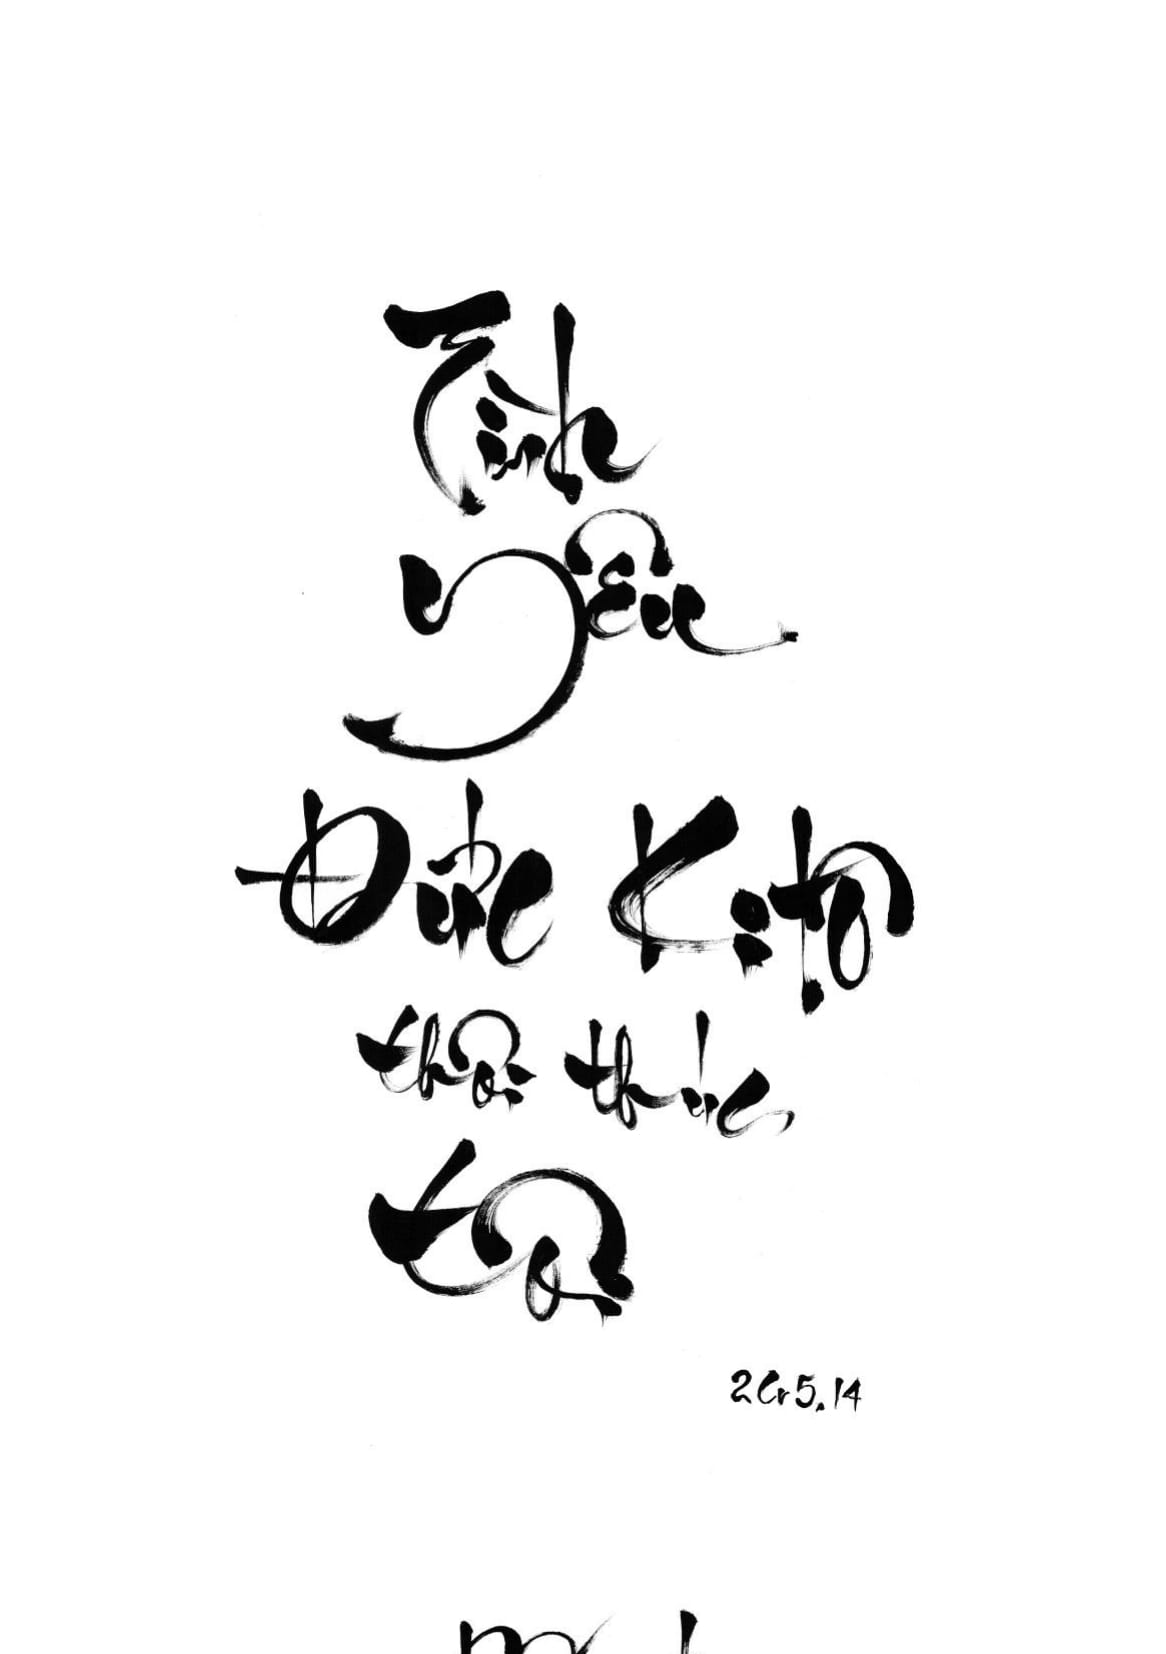 Tình
Yêu
Đức Kitô
thôi thúc
tôi
2Cr 5,14